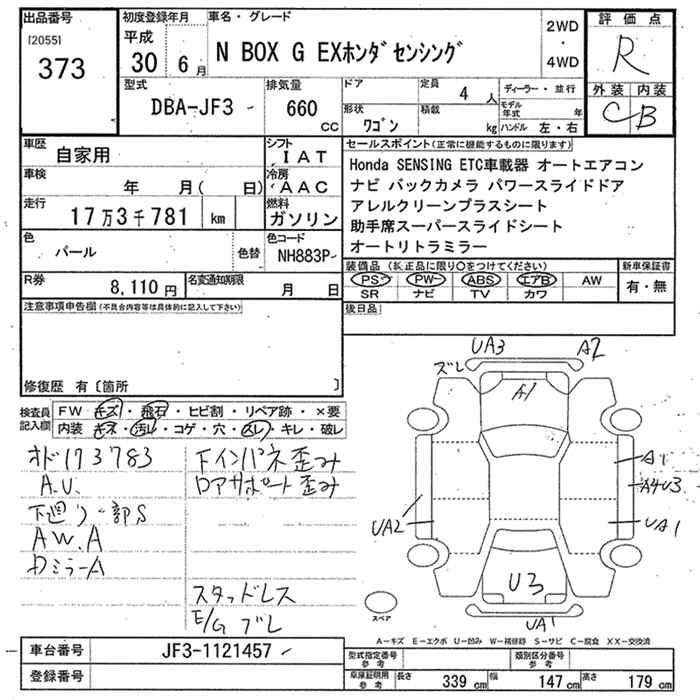 出品番号 初度登録年月 車名・グレード 2WD・4WD 評価点
[2055]
373
平成 30 6月 N BOX G EXホンダセンシング R
外装 内装
C B
型式 排気量 ドア 定員 4人 ディーラー・並行
DBA-JF3 660 cc 形状 ワゴン 積載 kg モデル年式 年
ハンドル 左・右
車歴 自家用 シフト IAT
車検 年 月( 日) 冷房 AAC
走行 17万3千781 km 燃料 ガソリン
色 パール 色替 色コード NH883P
R券 8,110円 名変通知期限 月 日
セールスポイント(正常に機能するものに限ります)
Honda SENSING ETC車載器 オートエアコン
ナビ バックカメラ パワースライドドア
アレルクリーンプラスシート
助手席スーパースライドシート
オートリトラミラー
装備品(純正品に限り○をつけてください) 新車保証書
PS PW ABS エアB AW 有・無
SR ナビ TV カワ
後日品
注意事項申告欄(不具合内容等は具体的に記入して下さい)
修復歴 有〔箇所 〕
検査員記入欄 FW キズ・飛石・ヒビ割・リペア跡・×要
内装 キズ・汚レ・コゲ・穴・スレ・キレ・破レ
オド173783
A.U.
下廻り一部S
AW.A
Dミラー A
Fインパネ歪み
ロアサポート歪み
スタッドレス
E/G ブレ
UA3
ズレ
A2
A1
A1
A4U3
UA2
UA1
U3
UA1
スペア
A-キズ E-エクボ U-凹み W-補修跡 S-サビ C-腐食 XX-交換済
車台番号 JF3-1121457
登録番号
型式指定番号 参考 類別区分番号 参考
車庫証明用 参考 長さ 339cm 幅 147cm 高さ 179cm